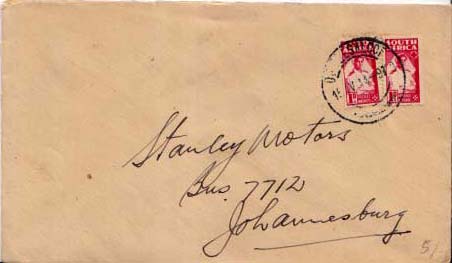 SOUTH
AFRICA
Stanley Motors
Bus. 7712
Johannesburg
5/